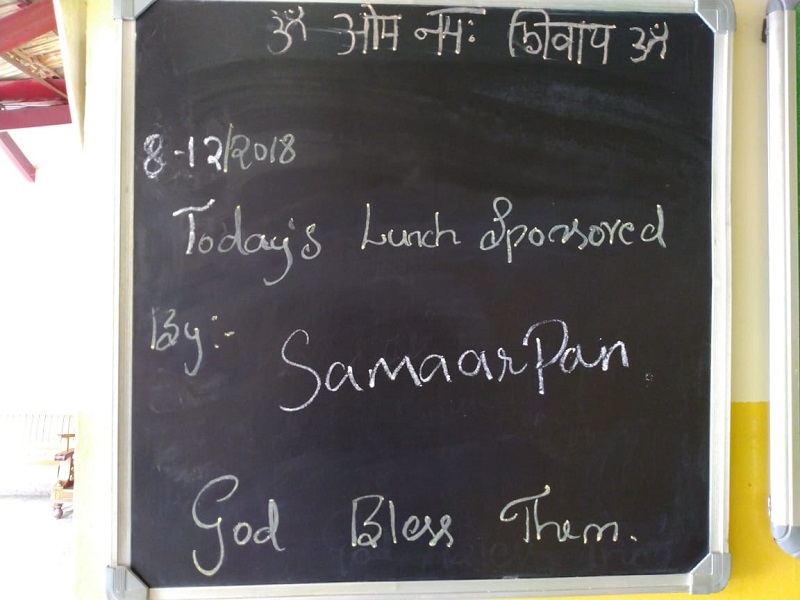 ॐ ओम नमः शिवाय ॐ
8-12/2018
Today's Lunch Sponsored
By:-
SamaarPan
God Bless Them.